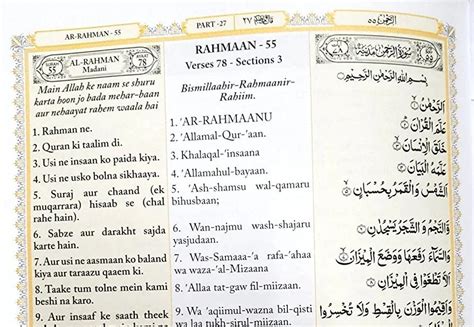 AR-RAHMAN - 55
PART - 27
٢٧
الرَّحْمٰن ٥٥
SURAH 55
AL-RAHMAN
Madani
78
Main Allah ke naam se shuru
karta hoon jo bada mehar-baan
aur nehaayat rahem waala hai
1. Rahman ne.
2. Quran ki taalim di.
3. Usi ne insaan ko paida kiya.
4. Usi ne usko bolna sikhaaya.
5. Suraj aur chaand (ek
muqarrara) hisaab se (chal
rahe hain).
6. Sabze aur darakht sajda
karte hain.
7. Aur usi ne aasmaan ko buland
kiya aur taraazu qaaem ki.
8. Taake tum tolne mein kami
beshi na karo.
9. Aur insaaf ke saath theek
RAHMAAN - 55
Verses 78 - Sections 3
Bismillaahir-Rahmaanir-
Rahiim.
1. 'AR-RAHMAANU
2. 'Allamal-Qur-'aan.
3. Khalaqal-'insaana
4. 'Allamahul-bayaan.
5. 'Ash-shamsu wal-qamaru
bihusbaan;
6. Wan-najmu wash-shajaru
yasjudaan.
7. Was-Samaaa-'a rafa-'ahaa
wa waza-'al-Mizaana
8. 'Allaa tat-gaw fil-miizaan
9. Wa 'aqiimul-wazna bil-qisti
wa laa tukh-sirul-miizaan
سُوْرَةُ الرَّحْمٰنِ مَدَنِيَّةٌ
بِسْمِ اللّٰهِ الرَّحْمٰنِ الرَّحِيْمِ
اَلرَّحْمٰنُ ۝
عَلَّمَ الْقُرْاٰنَ ۝
خَلَقَ الْاِنْسَانَ ۝
عَلَّمَهُ الْبَيَانَ ۝
اَلشَّمْسُ وَ الْقَمَرُ بِحُسْبَانٍ ۝
وَّالنَّجْمُ وَ الشَّجَرُ يَسْجُدٰنِ ۝
وَالسَّمَآءَ رَفَعَهَا وَ وَضَعَ الْمِيْزَانَ ۝
اَلَّا تَطْغَوْا فِي الْمِيْزَانِ ۝
وَاَقِيْمُوا الْوَزْنَ بِالْقِسْطِ وَلَا تُخْسِرُوا